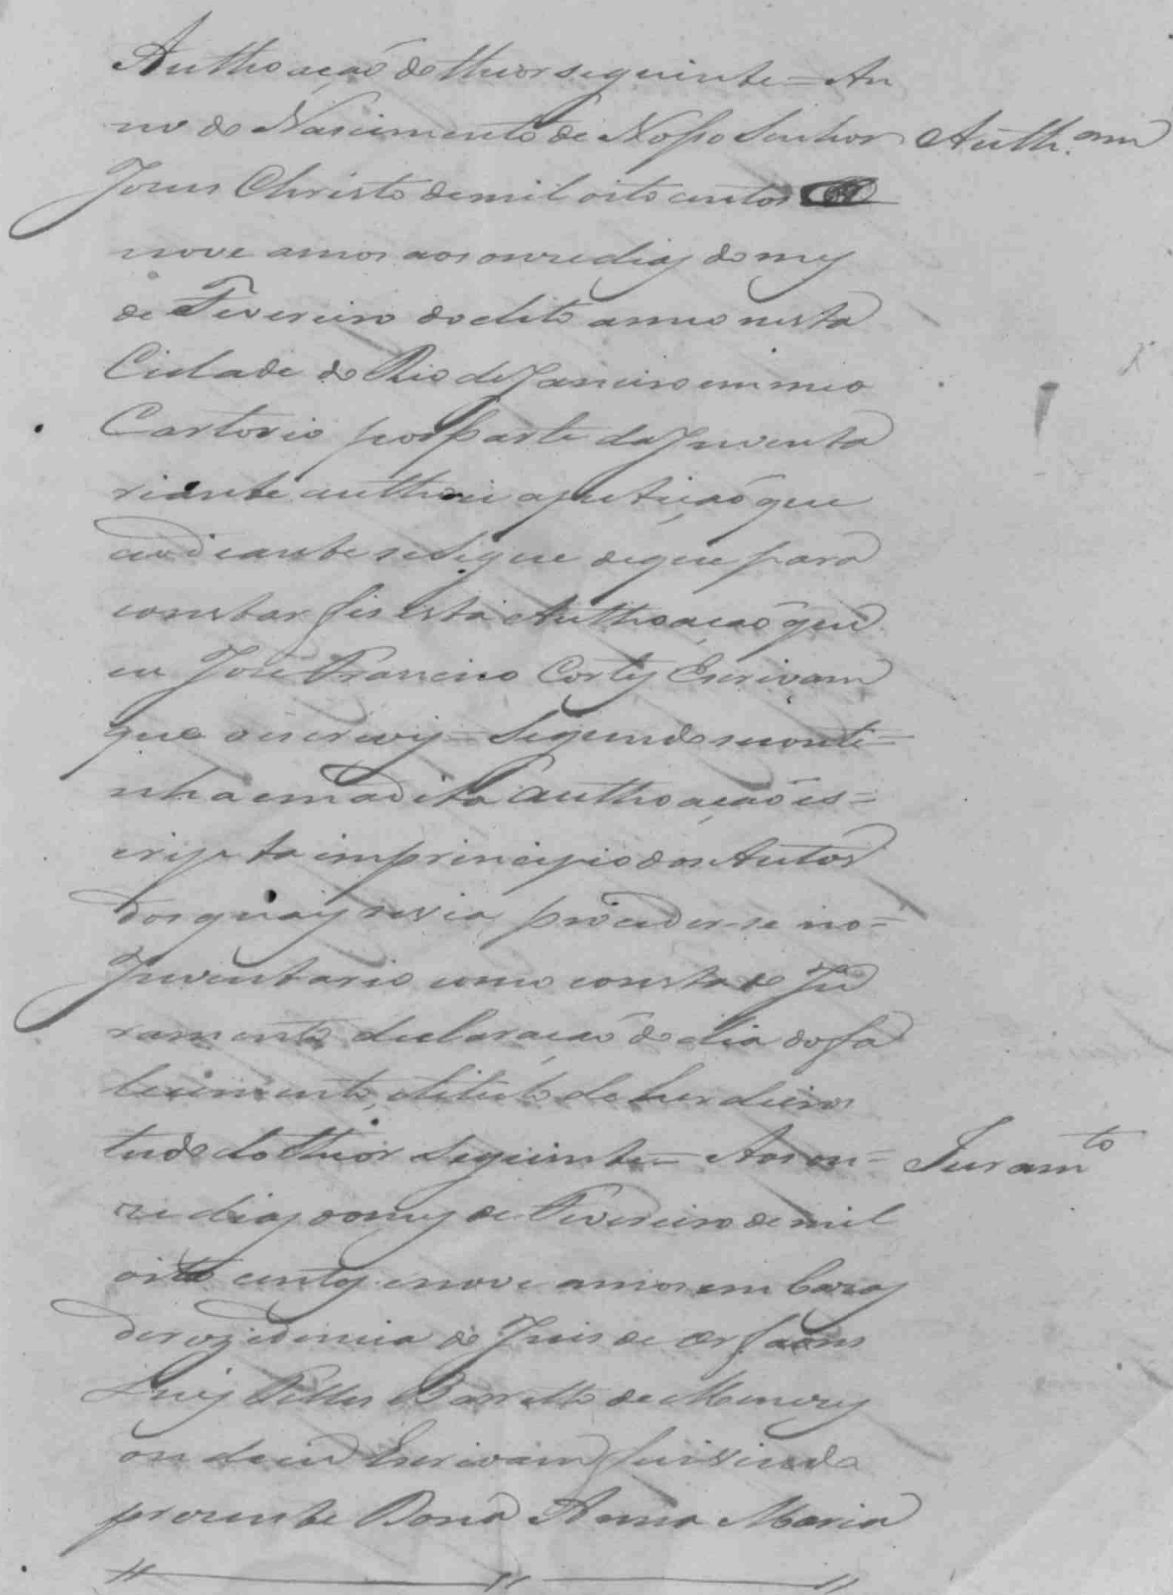 Authoação do theor seguinte = An
no do Nascimento de Nosso Senhor Auth.am
Jesus Christo de mil oito centos e
nove annos aos onze dias do mes
de Fevereiro do dito anno nesta
Cidade do Rio de Janeiro em meo
Cartorio por parte da Inventa
riante authuei a petiçaõ que
ao diante se segue de que para
constar fis esta Authoaçaõ que
eu José Francisco Cortes Escrivam
que o escrevy = Segundo se conti=
nha em a dita Authoaçaõ es=
cripta im principio dos Autos
dos quais se via proceder-se no=
Inventario como consta do Ju
ramento, declaraçaõ do dia do fa
lecimento, titulo de herdeiros
tudo do theor seguinte = Aos on= Juram.to
ze dias do mes de Fevereiro de mil
oito centos e nove annos em Cazas
de rezidencia do Juis de Orfaons
Luis Barretto de Menezes
onde eu Escrivam fui vindo
prezente Dona Anna Maria